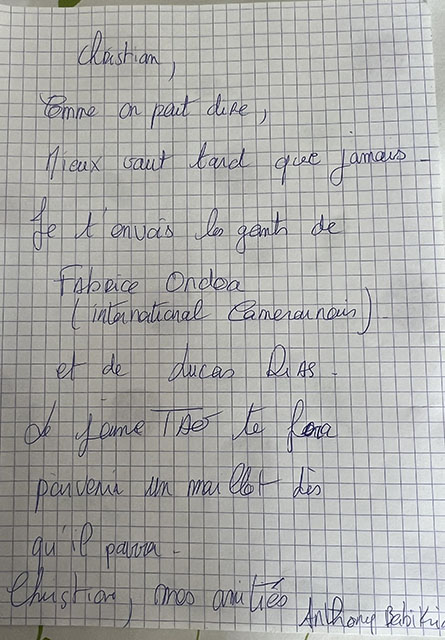 Christian,
Comme on peut dire,
Mieux vaut tard que jamais -
Je t'envois les gants de
Fabrice Ondoa
(international Camerounais)
et de Lucas DIAS.
Le jeune TAO te fera
parvenir un maillot dès
qu'il pourra -
Christian, mes amitiés
Anthony